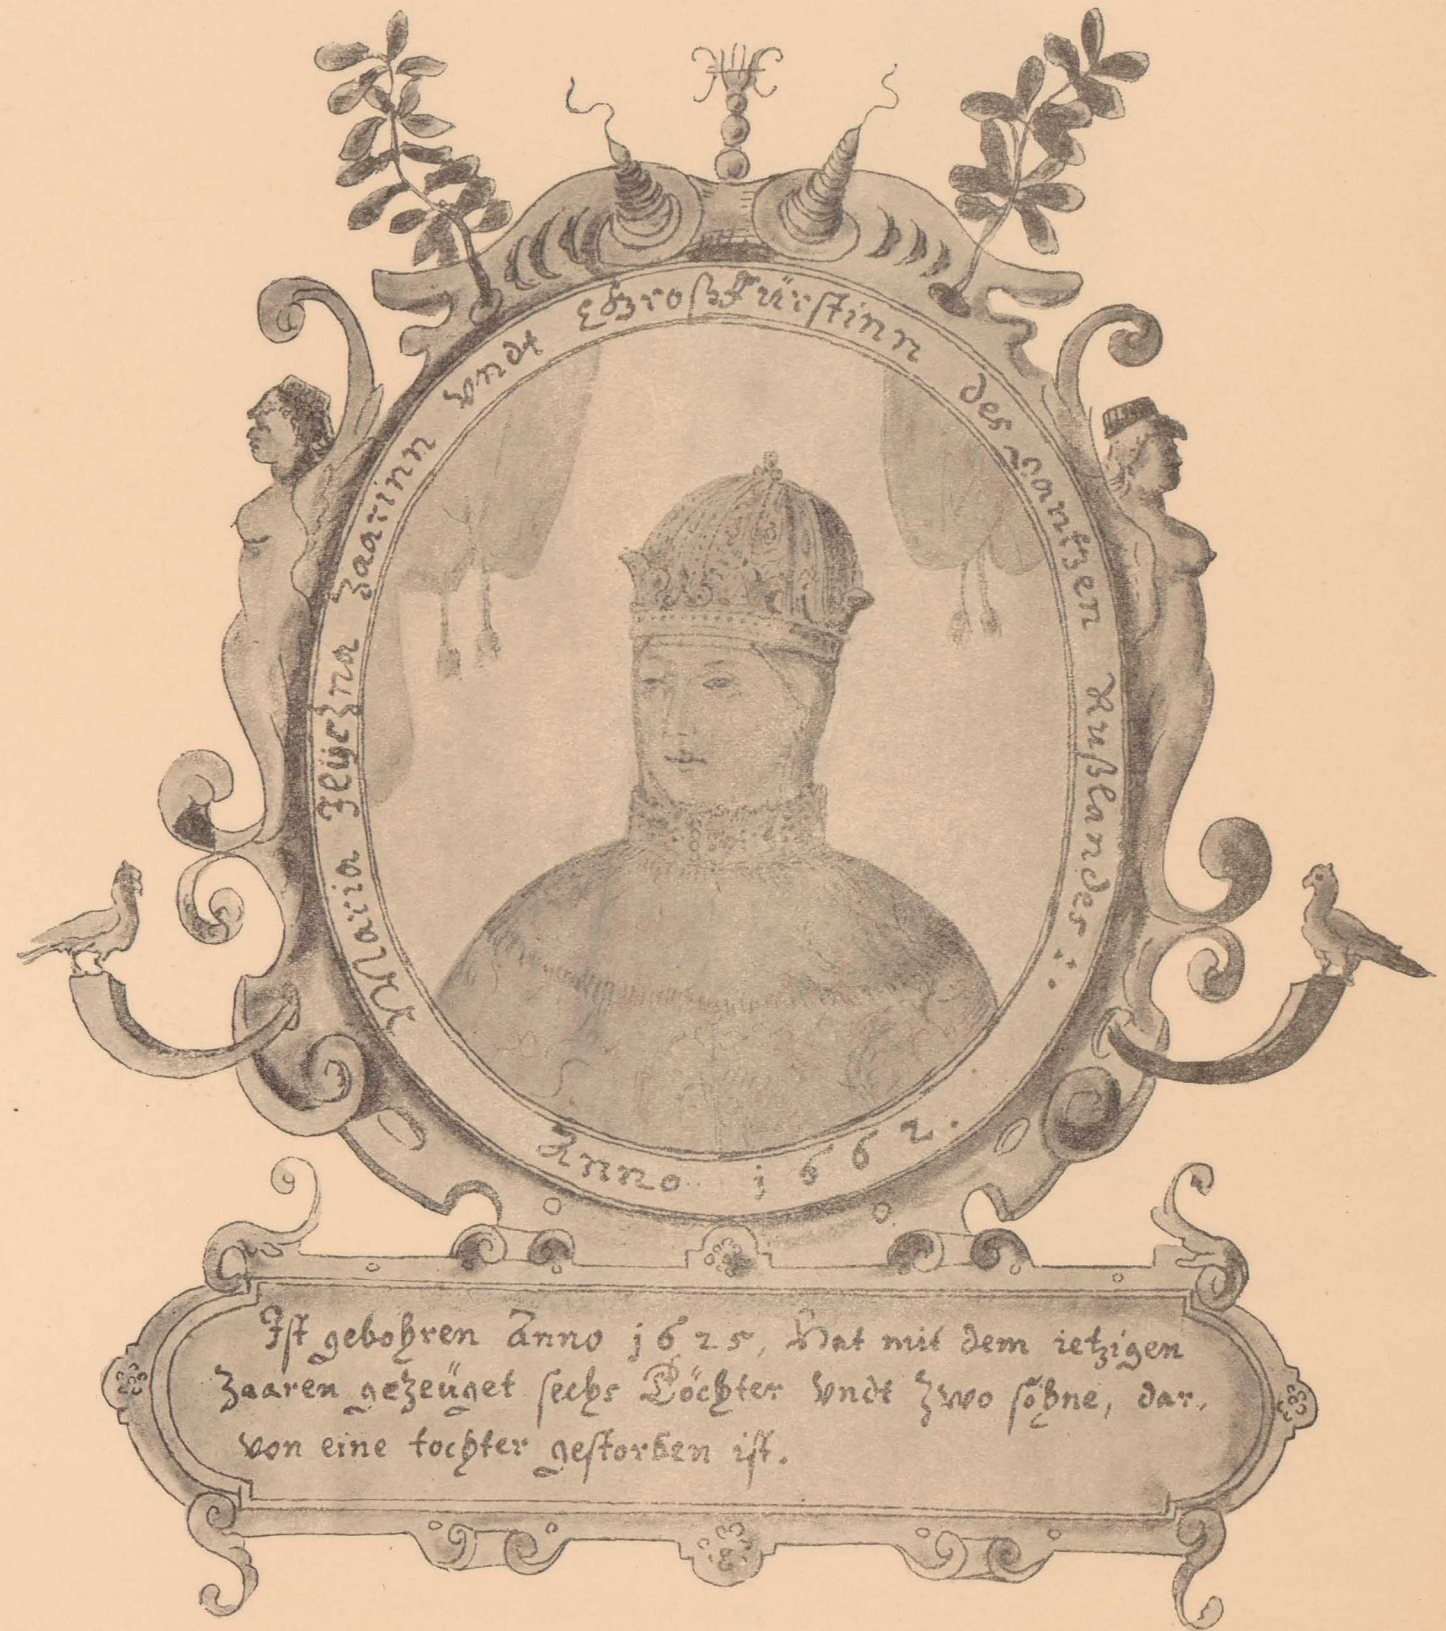 Maria Iliiczna Zaarinn vndt GroßFürstinn des Gantzen Rußlandes :
Anno 1662.
Ist gebohren Anno 1625, Hat mit dem ietzigen
Zaaren gezeüget sechs Töchter Vndt Zwo söhne, dar,
von eine tochter gestorben ist.